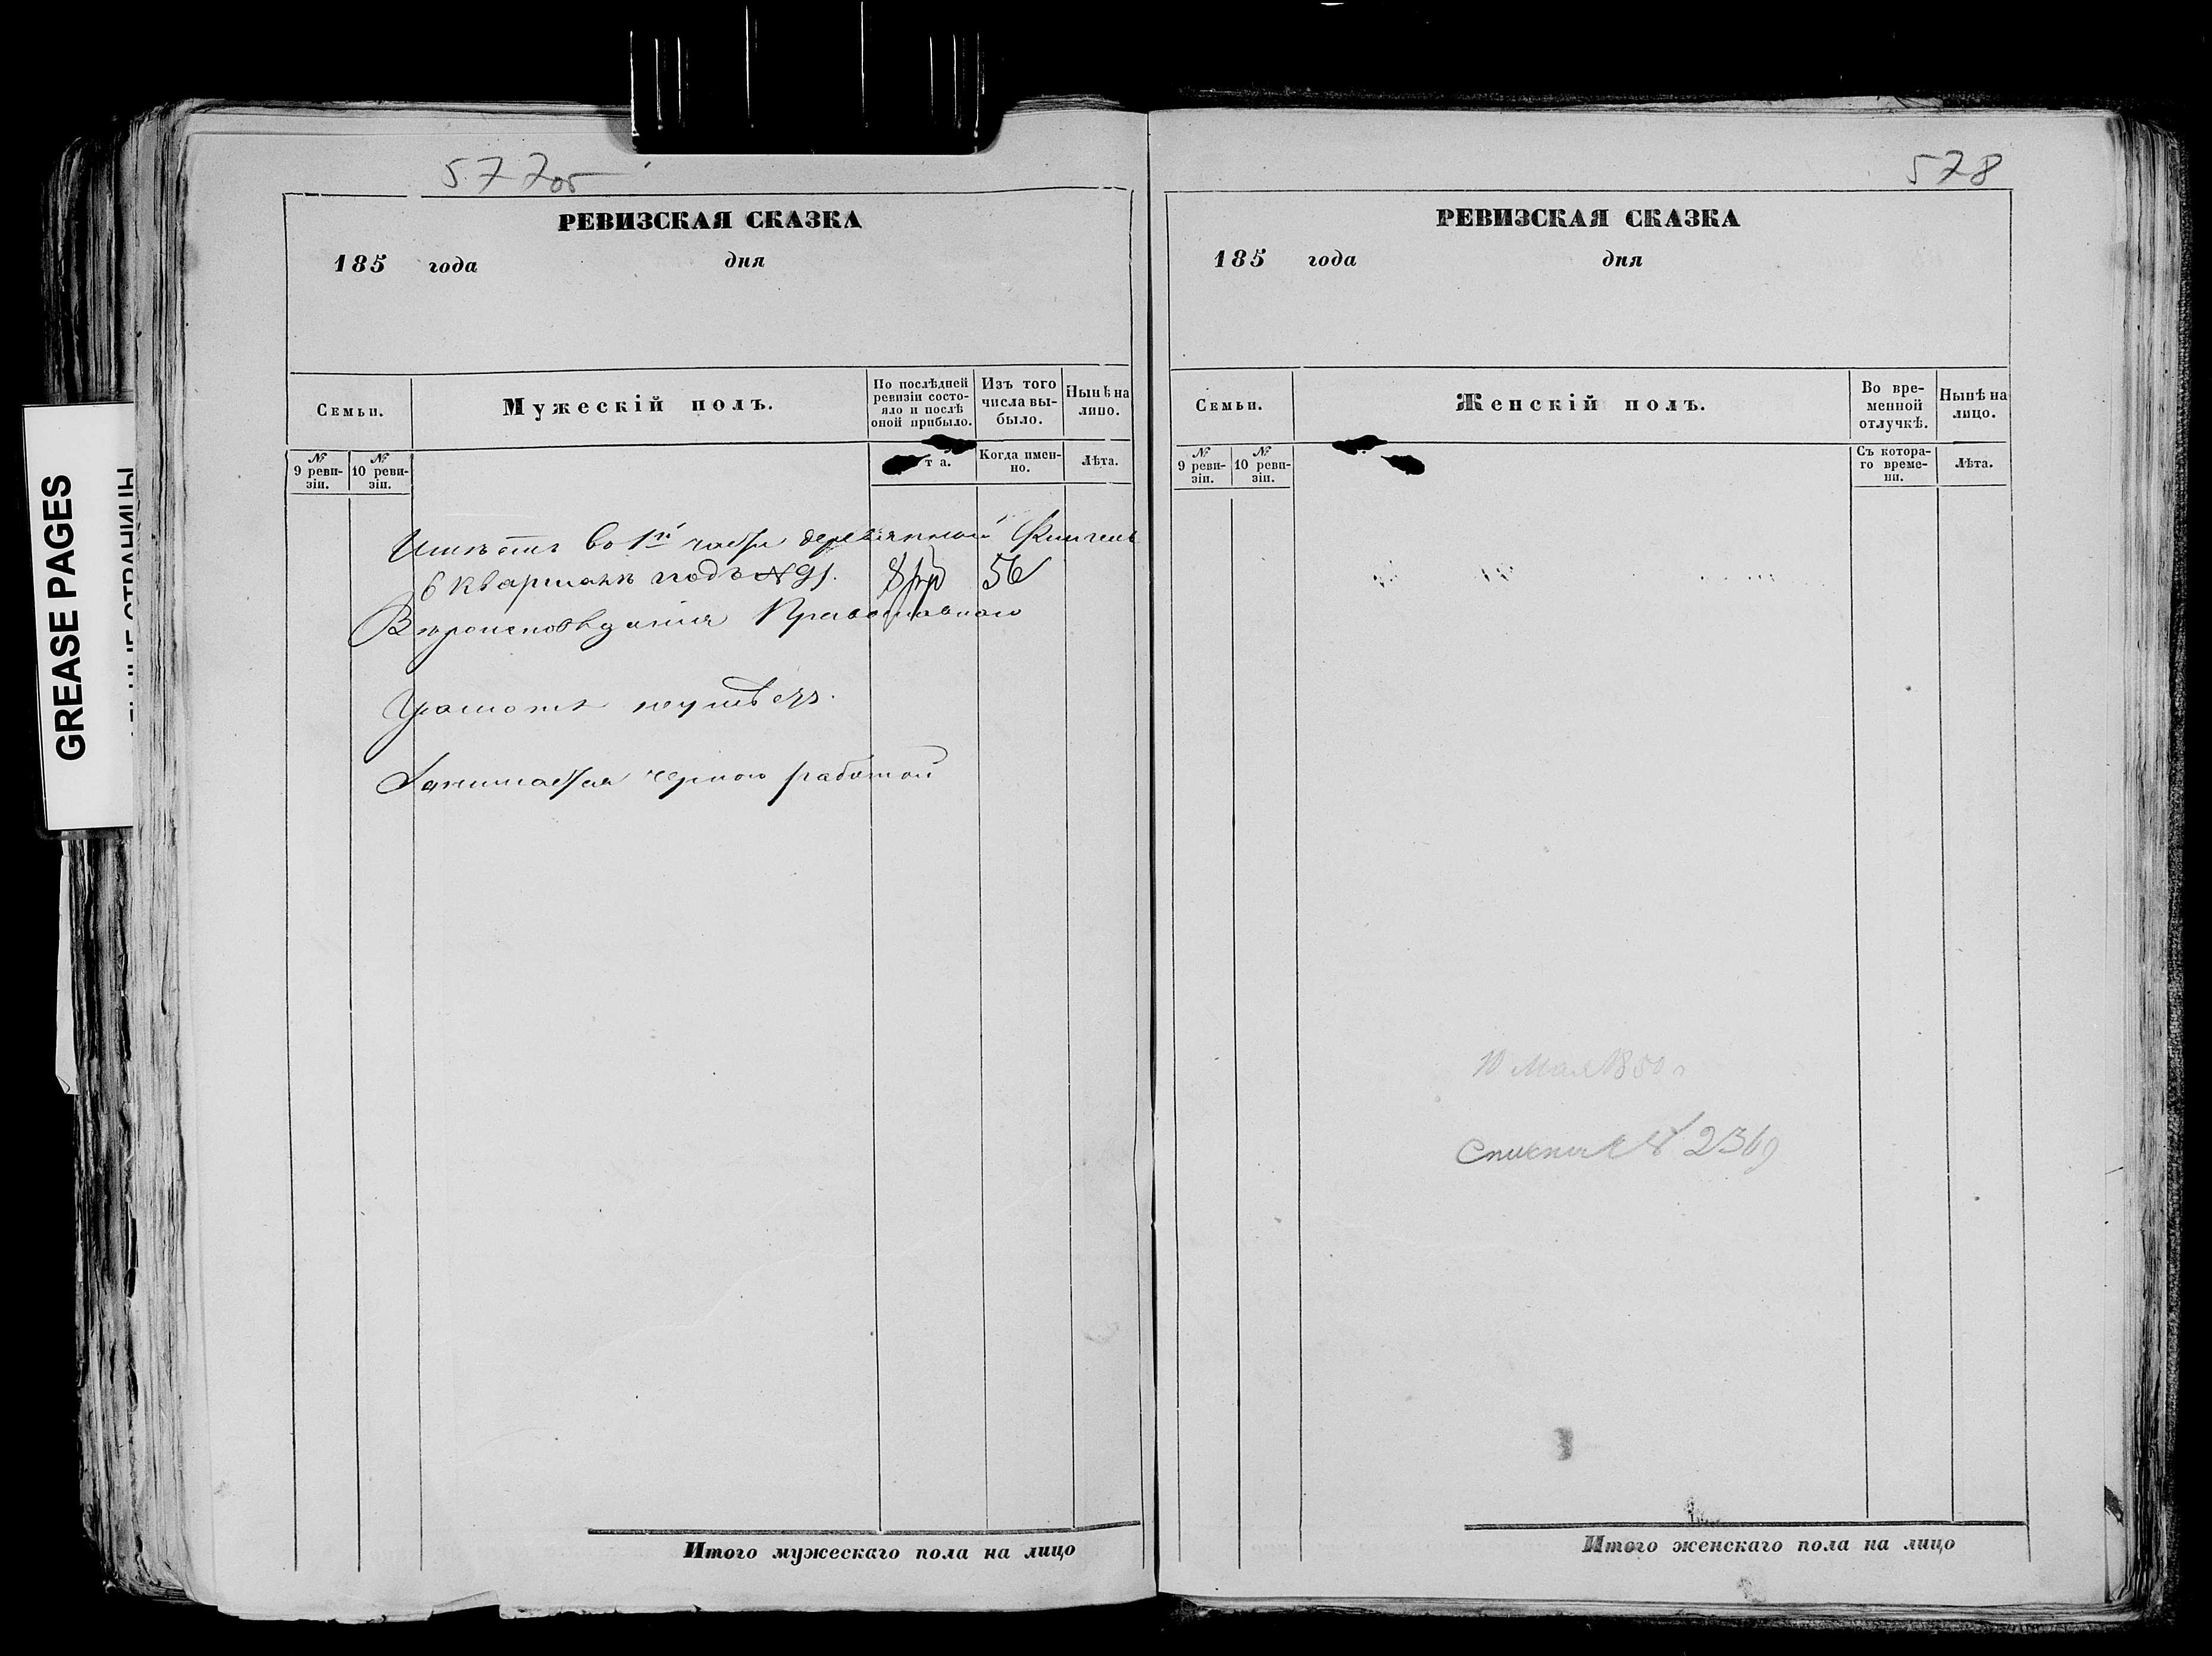 577об
РЕВИЗСКАЯ СКАЗКА
185 года дня
Семьи.
Мужескій полъ.
По послѣдней ревизіи состояло и послѣ оной прибыло.
Изъ того числа выбыло.
Нынѣ на лицо.
№ 9 ревизіи.
№ 10 ревизіи.
та.
Когда именно.
Лѣта.
Имѣетъ во 1й части деревянной Флигель
6 Кварталѣ подъ № 91. 8 56
Вѣроисповѣданія Православнаго
Грамотѣ неумѣетъ.
Занимается черною работой
Итого мужескаго пола на лицо
578
РЕВИЗСКАЯ СКАЗКА
185 года дня
Семьи.
Женскій полъ.
Во временной отлучкѣ.
Нынѣ на лицо.
№ 9 ревизіи.
№ 10 ревизіи.
Съ котораго времени.
Лѣта.
10 Мая 1850 г
№ 2369
Итого женскаго пола на лицо
GREASE PAGES